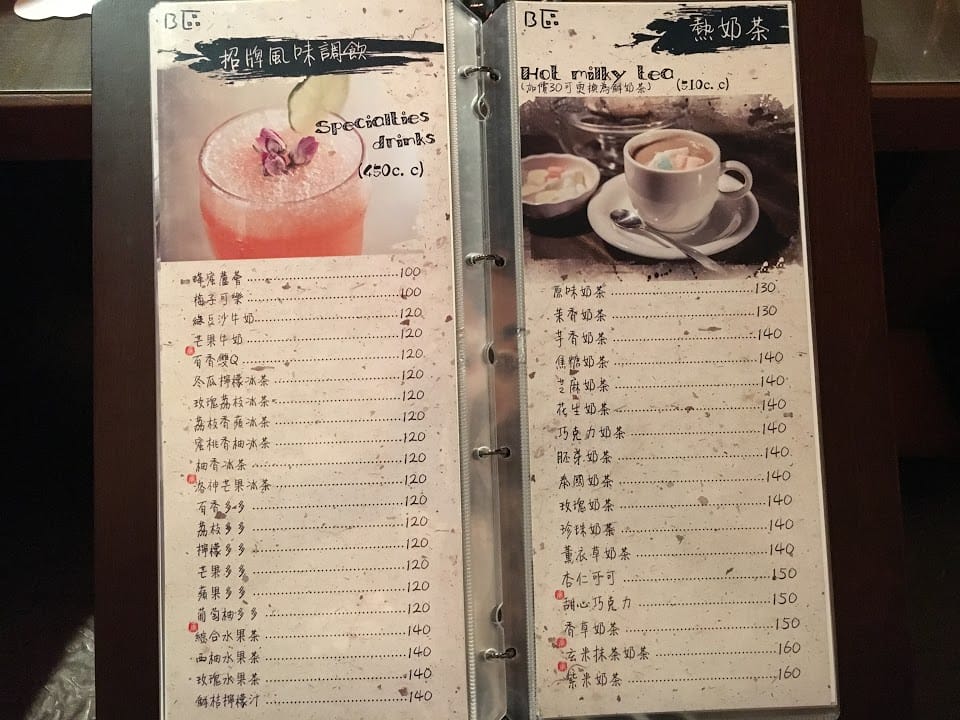 B區
招牌風味調飲
Specialties
drinks
(450c. c)
蜂蜜蘆薈 100
梅子可樂 100
綠豆沙牛奶 120
芒果牛奶 120
百香雙Q 120
冬瓜檸檬冰茶 120
玫瑰荔枝冰茶 120
荔枝香蘋冰茶 120
蜜桃香柚冰茶 120
柚香冰茶 120
洛神芒果冰茶 120
百香多多 120
荔枝多多 120
檸檬多多 120
芒果多多 120
蘋果多多 120
葡萄柚多多 120
綜合水果茶 140
西柚水果茶 140
玫瑰水果茶 140
鮮桔檸檬汁 140
B區
熱奶茶
Hot milky tea
(加價30可更換為鮮奶茶) (510c. c)
原味奶茶 130
茉香奶茶 130
芋香奶茶 140
焦糖奶茶 140
芝麻奶茶 140
花生奶茶 140
巧克力奶茶 140
胚芽奶茶 140
泰國奶茶 140
玫瑰奶茶 140
珍珠奶茶 140
薰衣草奶茶 140
杏仁可可 150
甜心巧克力 150
香草奶茶 150
玄米抹茶奶茶 160
紫米奶茶 160